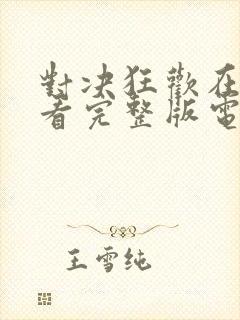 對决狂歡在
看完整版電
王雪纯